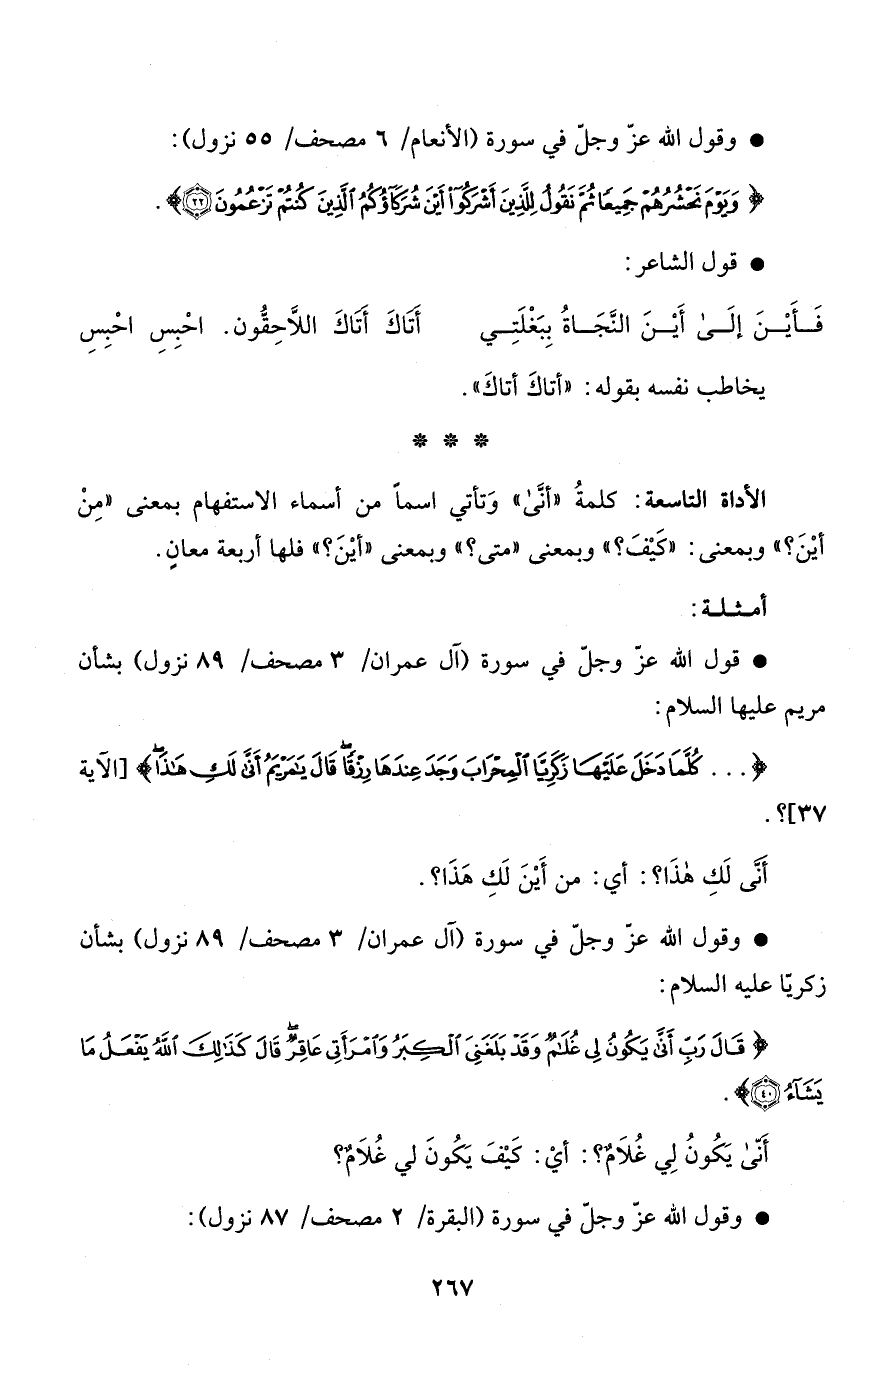 ● وقول الله عزّ وجلّ في سورة (الأنعام/ ٦ مصحف/ ٥٥ نزول):
﴿ وَيَوْمَ نَحْشُرُهُمْ جَمِيعًا ثُمَّ نَقُولُ لِلَّذِينَ أَشْرَكُوٓا۟ أَيْنَ شُرَكَآؤُكُمُ ٱلَّذِينَ كُنتُمْ تَزْعُمُونَ ٢٢﴾.
● قول الشاعر:
فَــأَيْــنَ إِلَــىٰ أَيْــنَ النَّجَــاةُ بِبَغْلَتِــي أَتَاكَ أَتَاكَ اللَّاحِقُّون. احْبِسِ احْبِسِ
يخاطب نفسه بقوله: «أتاكَ أتاكَ».
* * *
الأداة التاسعة: كلمةُ «أَنَّىٰ» وَتأتي اسماً من أسماء الاستفهام بمعنى «مِنْ
أيْنَ؟» وبمعنى: «كَيْفَ؟» وبمعنى «متى؟» وبمعنى «أيْنَ؟» فلها أربعة معانٍ.
أمـثـلـة:
● قول الله عزّ وجلّ في سورة (آل عمران/ ٣ مصحف/ ٨٩ نزول) بشأن
مريم عليها السلام:
﴿ ... كُلَّمَا دَخَلَ عَلَيْهَا زَكَرِيَّا ٱلْمِحْرَابَ وَجَدَ عِندَهَا رِزْقًا ۖ قَالَ يَٰمَرْيَمُ أَنَّىٰ لَكِ هَٰذَا ۖ ﴾ [الآية
٣٧]؟.
أَنَّى لَكِ هٰذَا؟: أي: من أَيْنَ لَكِ هَذَا؟.
● وقول الله عزّ وجلّ في سورة (آل عمران/ ٣ مصحف/ ٨٩ نزول) بشأن
زكريّا عليه السلام:
﴿ قَالَ رَبِّ أَنَّىٰ يَكُونُ لِى غُلَٰمٌ وَقَدْ بَلَغَنِىَ ٱلْكِبَرُ وَٱمْرَأَتِى عَاقِرٌ ۖ قَالَ كَذَٰلِكَ ٱللَّهُ يَفْعَلُ مَا
يَشَآءُ ٤٠﴾.
أَنَّىٰ يَكُونُ لِي غُلَامٌ؟: أيْ: كَيْفَ يَكُونَ لي غُلَامٌ؟
● وقول الله عزّ وجلّ في سورة (البقرة/ ٢ مصحف/ ٨٧ نزول):
٢٦٧